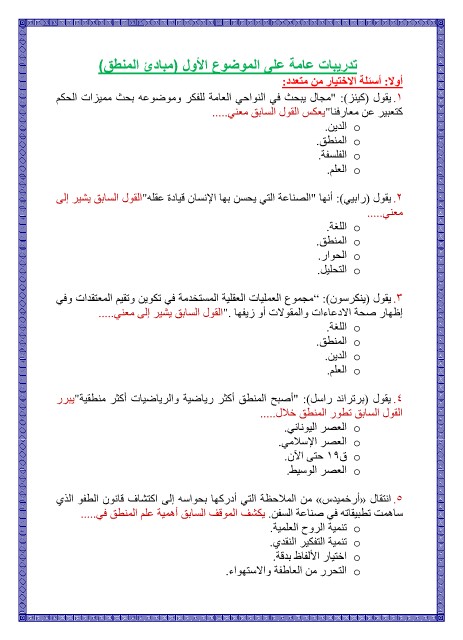 تدريبات عامة على الموضوع الأول (مبادئ المنطق)
أولا: أسئلة الاختيار من متعدد:
١. يقول (كينز): "مجال يبحث في النواحي العامة للفكر وموضوعه بحث مميزات الحكم
كتعبير عن معارفنا"يعكس القول السابق معني.....
o الدين.
o المنطق.
o الفلسفة.
o العلم.
٢. يقول (رابيي): أنها "الصناعة التي يحسن بها الإنسان قيادة عقله"القول السابق يشير إلى
معني.....
o اللغة.
o المنطق.
o الحوار.
o التحليل.
٣. يقول (ينكرسون): "مجموع العمليات العقلية المستخدمة في تكوين وتقيم المعتقدات وفي
إظهار صحة الادعاءات والمقولات أو زيفها ."القول السابق يشير إلى معني.....
o اللغة.
o المنطق.
o الدين.
o العلم.
٤. يقول (برتراند راسل): "أصبح المنطق أكثر رياضية والرياضيات أكثر منطقية"يبرر
القول السابق تطور المنطق خلال.....
o العصر اليوناني.
o العصر الإسلامي.
o ق١٩ حتى الآن.
o العصر الوسيط.
٥. انتقال «أرخميدس» من الملاحظة التي أدركها بحواسه إلى اكتشاف قانون الطفو الذي
ساهمت تطبيقاته في صناعة السفن. يكشف الموقف السابق أهمية علم المنطق في.....
o تنمية الروح العلمية.
o تنمية التفكير النقدي.
o اختيار الألفاظ بدقة.
o التحرر من العاطفة والاستهواء.